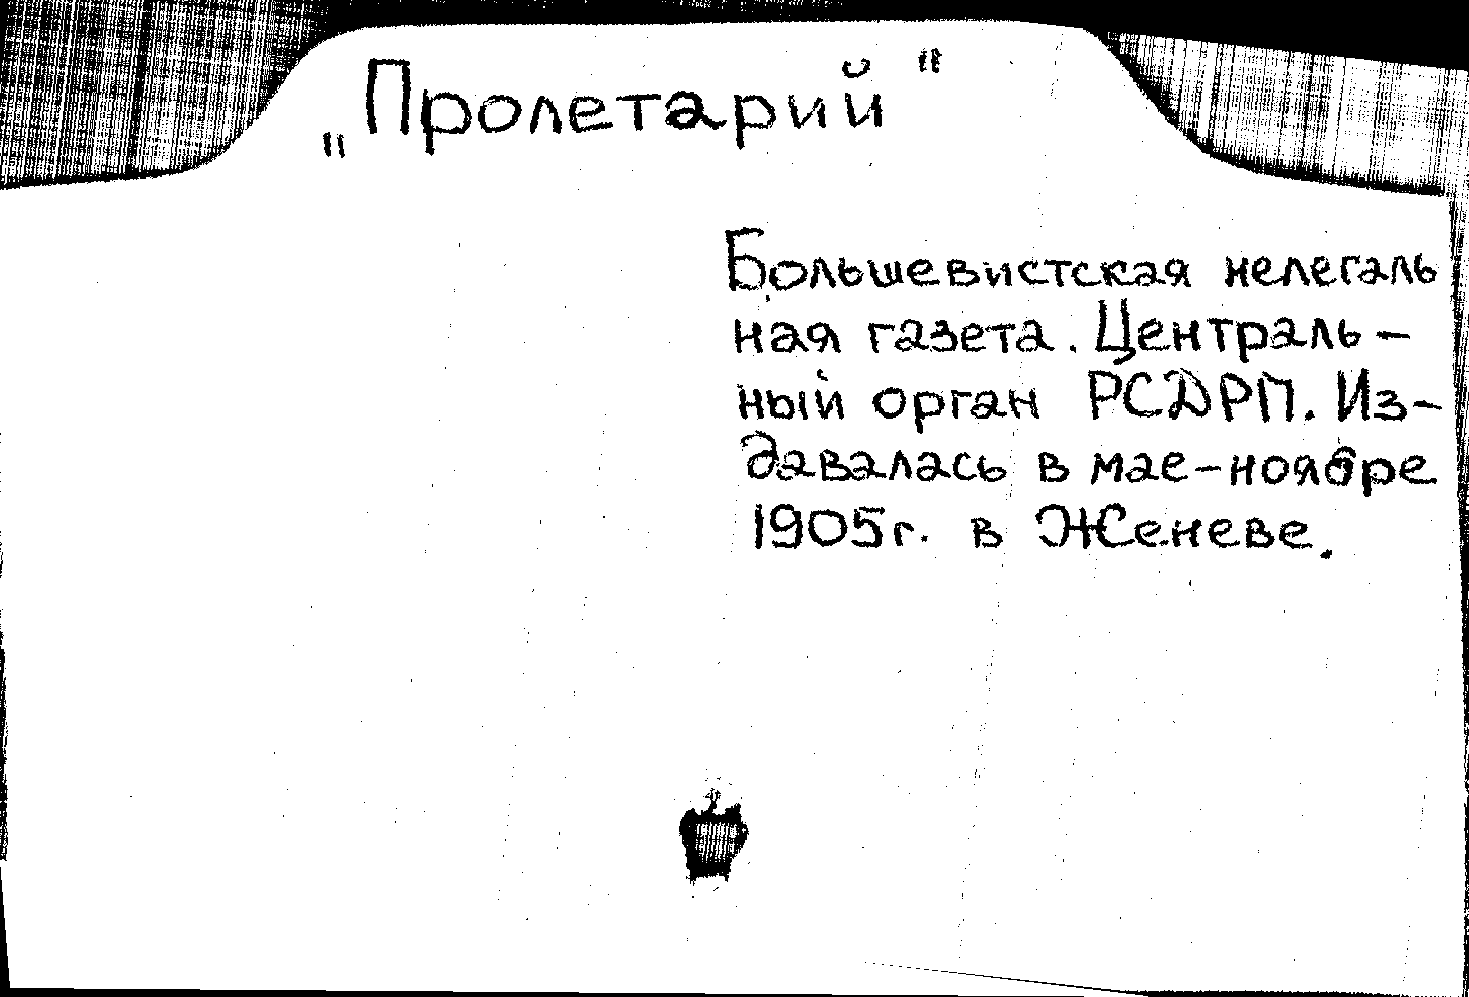 „Пролетарий"
Большевистская нелегаль
ная газета. Централь-
ный орган РСДРП. Из-
давалась в мае-ноябре
1905г. в Женеве.